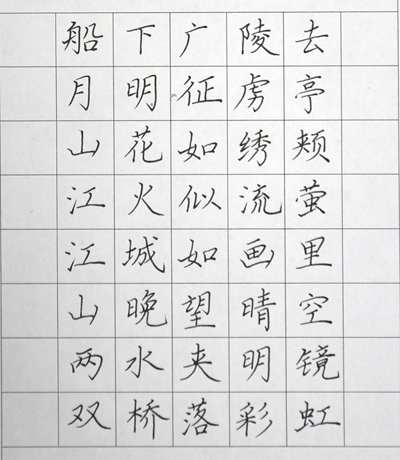 船下广陵去
月明征虏亭
山花如绣颊
江火似流萤
江城如画里
山晚望晴空
两水夹明镜
双桥落彩虹